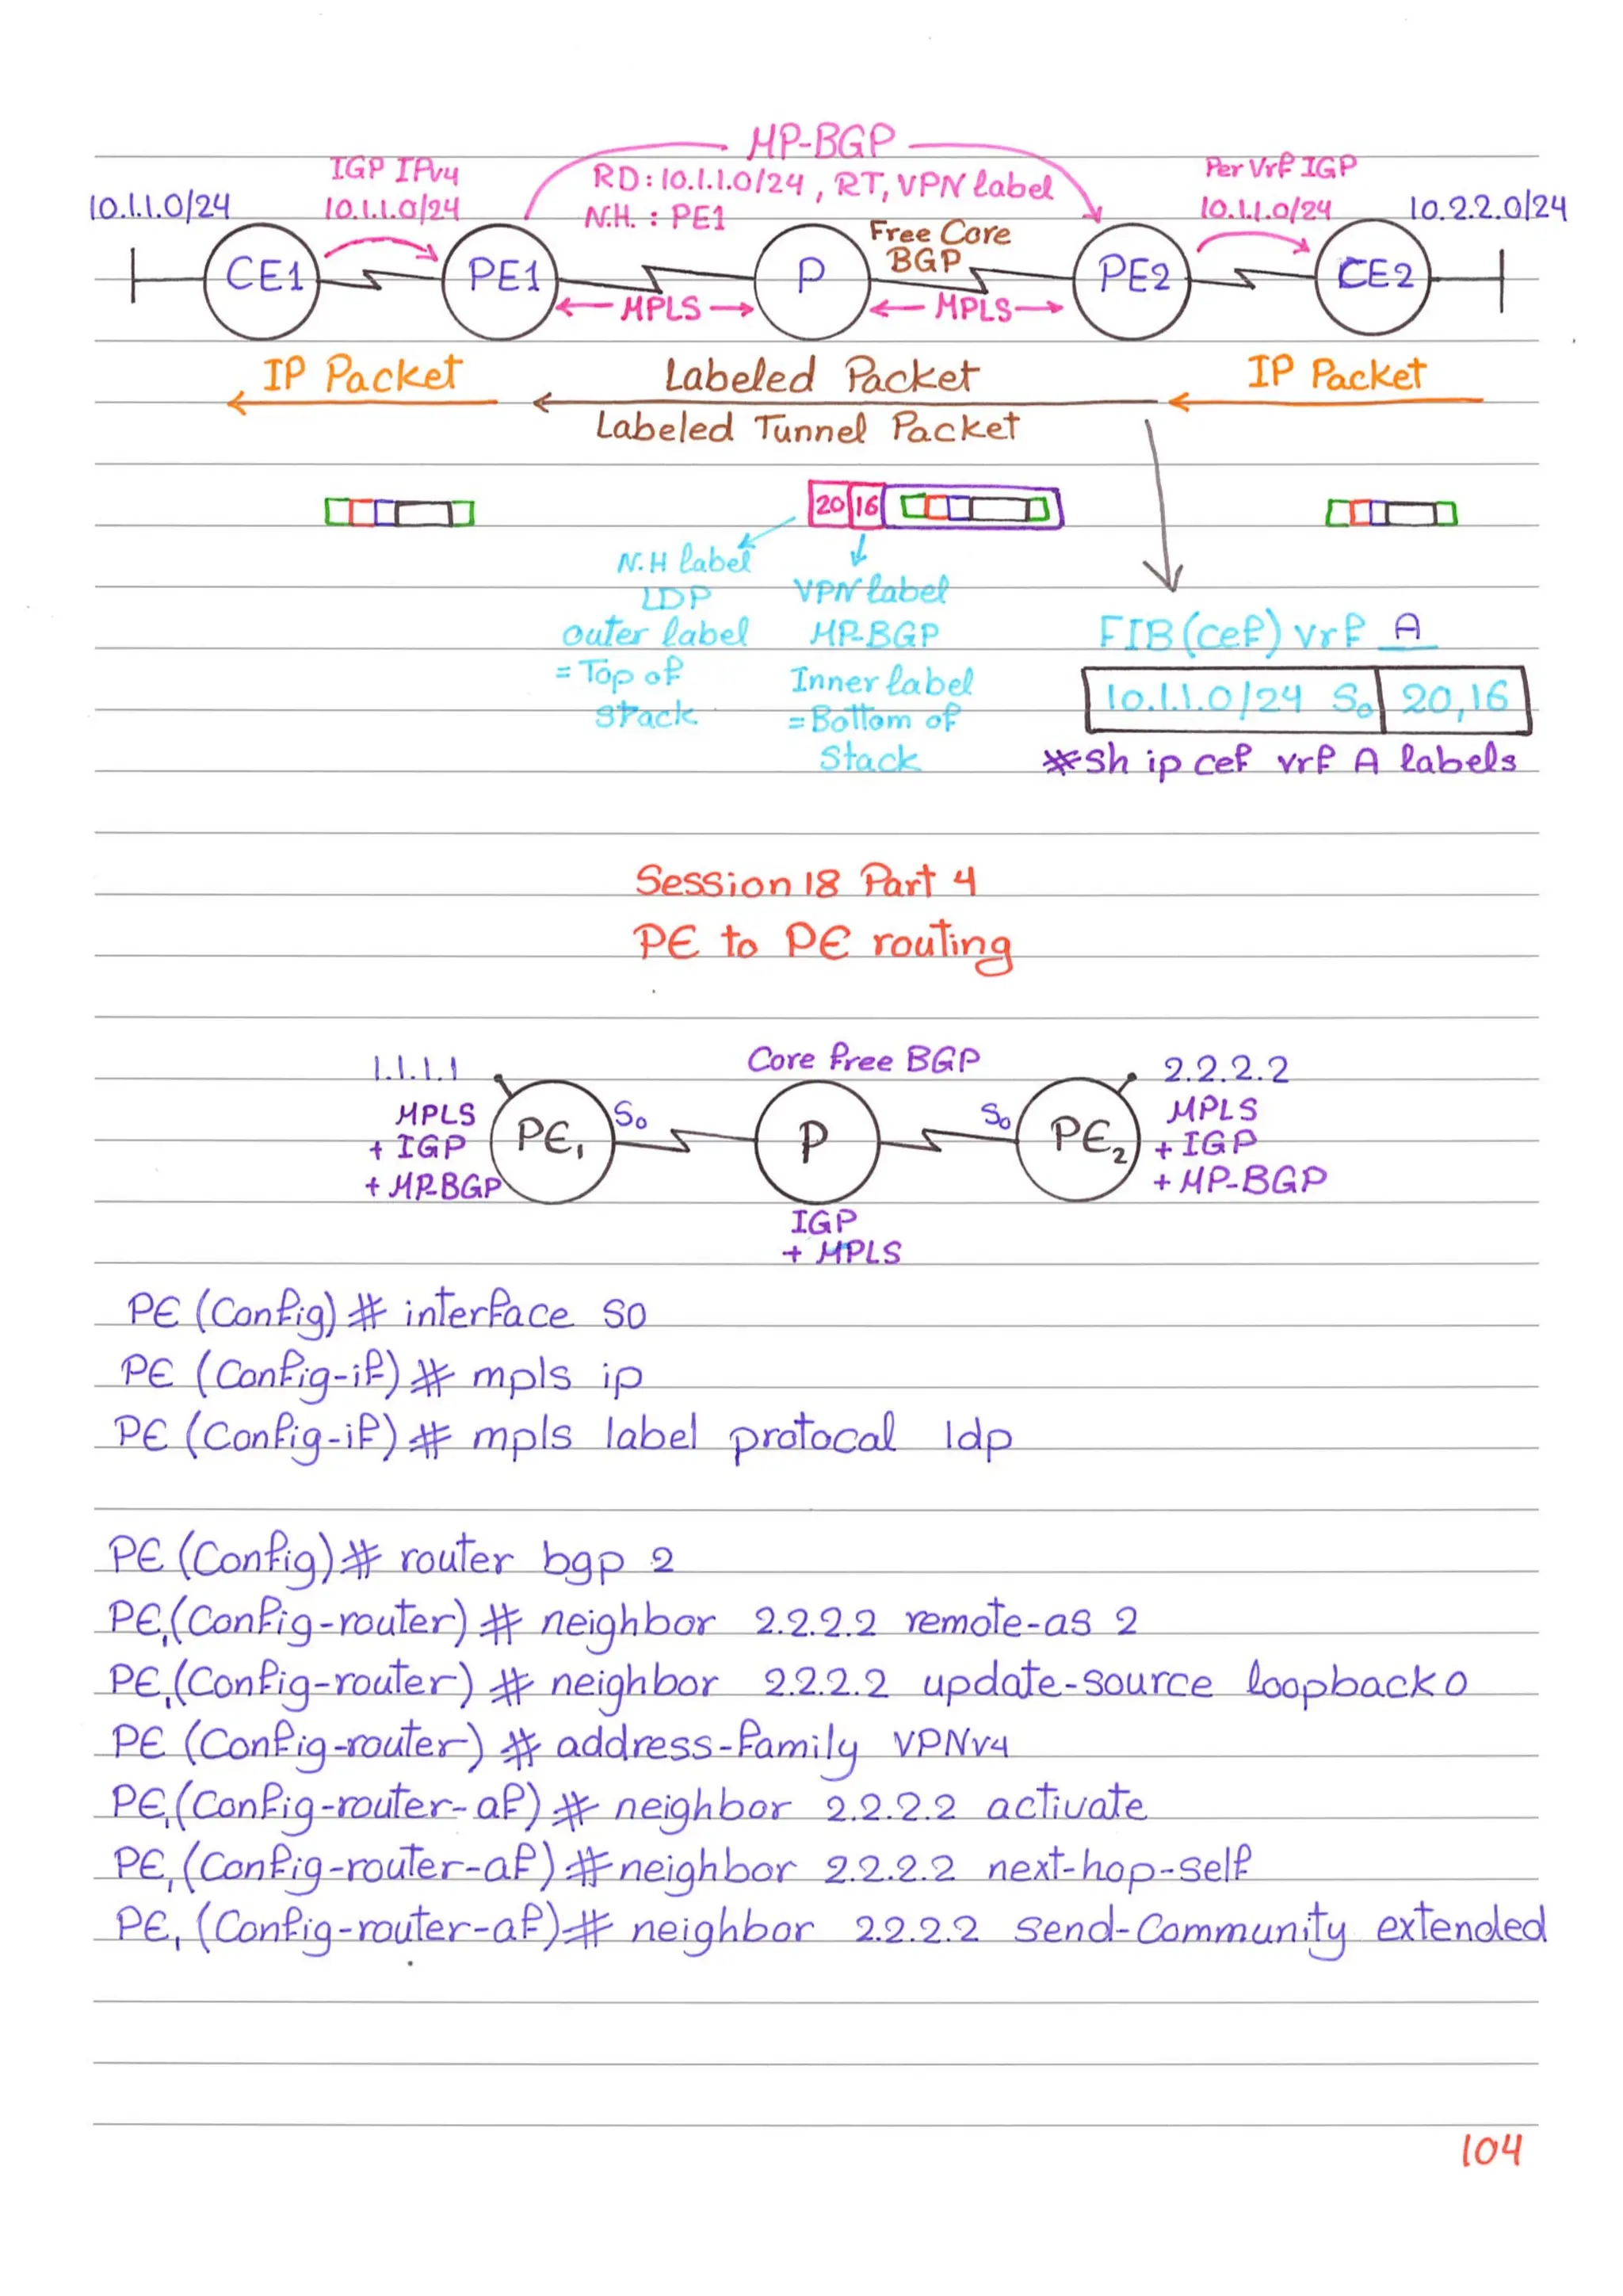 MP-BGP
IGP IPv4
RD:10.1.1.0/24, RT, VPN label
Per Vrf IGP
10.1.1.0/24
10.1.1.0/24
N.H. : PE1
10.1.1.0/24
10.2.2.0/24
Free Core
BGP
CE1
PE1
P
PE2
CE2
MPLS
MPLS
IP Packet
Labeled Packet
IP Packet
Labeled Tunnel Packet
20 16
N.H label
LDP
outer label
= Top of
Stack
VPN label
MP-BGP
Inner label
= Bottom of
Stack
FIB (cef) vrf A
10.1.1.0/24 S0 20,16
*Sh ip cef vrf A labels
Session 18 Part 4
PE to PE routing
Core free BGP
1.1.1.1
MPLS
+ IGP
+ MP-BGP
PE1
S0
P
S0
PE2
2.2.2.2
MPLS
+ IGP
+ MP-BGP
IGP
+ MPLS
PE (Config) # interface S0
PE (Config-if) # mpls ip
PE (Config-if) # mpls label protocal ldp
PE (Config) # router bgp 2
PE1(Config-router) # neighbor 2.2.2.2 remote-as 2
PE1(Config-router) # neighbor 2.2.2.2 update-source loopback 0
PE (Config-router) # address-family VPNv4
PE1(Config-router-af) # neighbor 2.2.2.2 activate
PE1(Config-router-af) # neighbor 2.2.2.2 next-hop-self
PE1 (Config-router-af) # neighbor 2.2.2.2 Send-Community extended
104